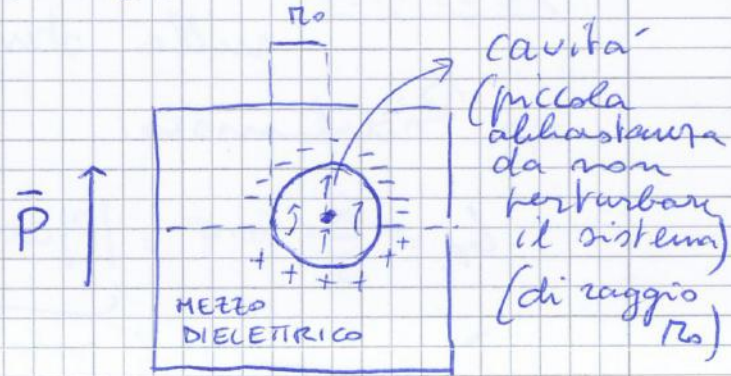 r₀
cavità
(piccola
abbastanza
da non
perturbare
il sistema)
(di raggio
r₀)
P̄
MEZZO
DIELETTRICO